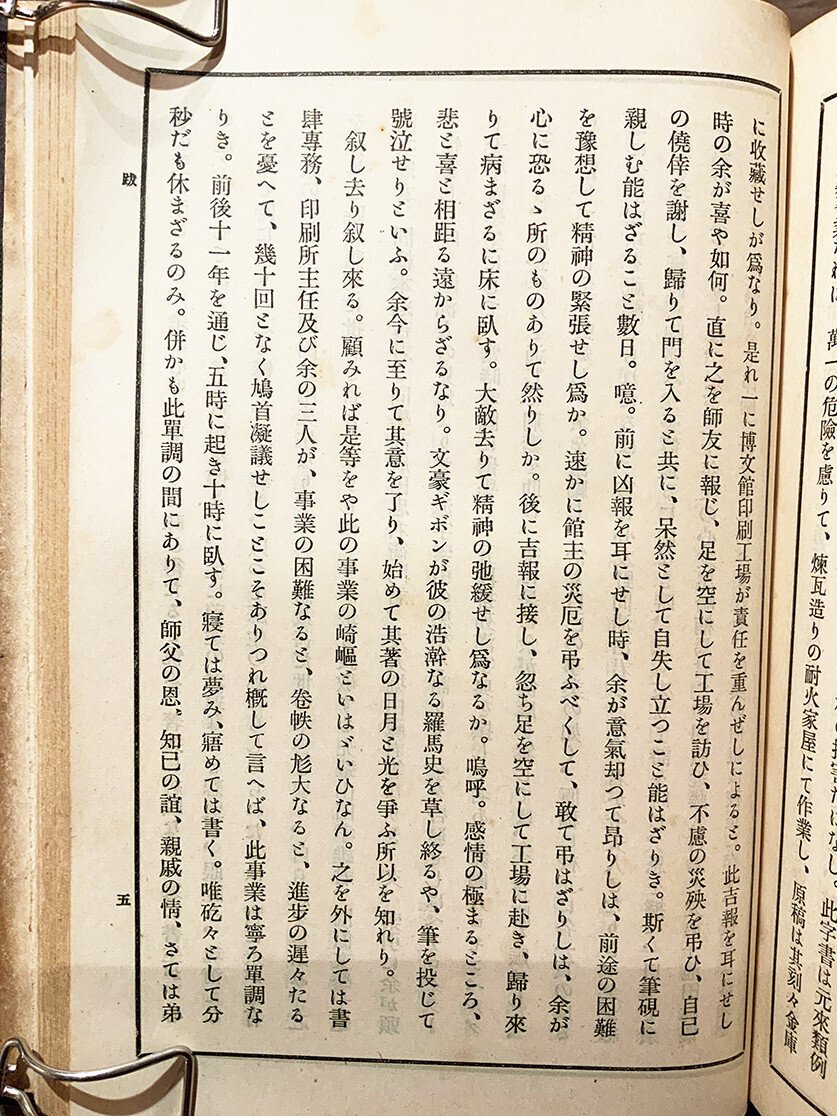 萬一の危險を慮りて、煉瓦造りの耐火家屋にて作業し、原稿は其刻々金庫
此字書は元來類例
に收藏せしが爲なり。是れ一に博文館印刷工場が責任を重んぜしによると。此吉報を耳にせし
時の余が喜や如何。直に之を師友に報じ、足を空にして工場を訪ひ、不慮の災殃を弔ひ、自己
の僥倖を謝し、歸りて門を入ると共に、呆然として自失し立つこと能はざりき。斯くて筆硯に
親しむ能はざること數日。噫。前に凶報を耳にせし時、余が意氣却つて昂りしは、前途の困難
を豫想して精神の緊張せし爲か。速かに館主の災厄を弔ふべくして、敢て弔はざりしは、余が
心に恐るゝ所のものありて然りしか。後に吉報に接し、忽ち足を空にして工場に赴き、歸り來
りて病まざるに床に臥す。大敵去りて精神の弛緩せし爲なるか。嗚呼。感情の極まるところ、
悲と喜と相距る遠からざるなり。文豪ギボンが彼の浩澣なる羅馬史を草し終るや、筆を投じて
號泣せりといふ。余今に至りて其意を了り、始めて其著の日月と光を爭ふ所以を知れり。
叙し去り叙し來る。顧みれば是等をや此の事業の崎嶇といはゞいひなん。之を外にしては書
肆專務、印刷所主任及び余の三人が、事業の困難なると、卷帙の尨大なると、進步の遲々たる
とを憂へて、幾十回となく鳩首凝議せしことこそありつれ槪して言へば、此事業は寧ろ單調な
りき。前後十一年を通じ、五時に起き十時に臥す。寢ては夢み、寤めては書く。唯矻々として分
秒だも休まざるのみ。併かも此單調の間にありて、師父の恩。知己の誼、親戚の情、さては弟
跋
五